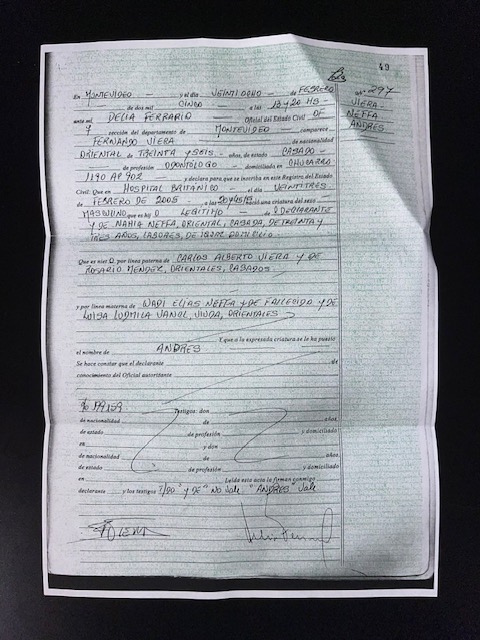 49
En MONTEVIDEO y el día VEINTIOCHO de FEBRERO
de dos mil CINCO a las 13 y 20 HS
ante mí, DELIA FERRARIO Oficial del Estado Civil DE
9 sección del departamento de MONTEVIDEO comparece
FERNANDO VIERA de nacionalidad
ORIENTAL de TREINTA y SEIS años, de estado CASADO
de profesión ODONTÓLOGO domiciliado en
1190 AP 902 y declara para que se inscriba en este Registro del Estado
Civil: Que en HOSPITAL BRITÁNICO el día VEINTITRES
de FEBRERO DE 2005 nació una criatura del sexo
MASCULINO que es hij O LEGITIMO de L DECLARANTE
Y DE NAHIA NEFFA, ORIENTAL, CASADA, DE TREINTA Y
TRES AÑOS, LABORES, DE IGUAL DOMICILIO
Que es niet O por línea paterna de CARLOS ALBERTO VIERA Y DE
ROSARIO MENDEZ, ORIENTALES, CASADOS
y por línea materna de WADI ELIAS NEFFA Y DE FALLECIDO Y DE
LUISA LUDMILA VANCL, VIUDA, ORIENTALES
Y que a la expresada criatura se le ha puesto
el nombre de ANDRES
Se hace constar que el declarante es de
conocimiento del Oficial autorizante
Testigos: don
de nacionalidad de años,
de estado de profesión y domiciliado
en y don
de nacionalidad de años,
de estado de profesión y domiciliado
en Leída esta acta la firman conmigo
declarante y los testigos T/DO "Y DE" NO Vale "ANDRES" Vale
Nº 297
VIERA
NEFFA
ANDRES